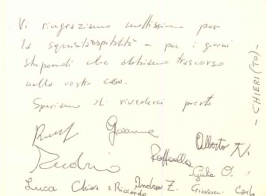 Vi ringraziamo moltissimo per
la squisita ospitalità e per i giorni
stupendi che abbiamo trascorso
nella vostra casa.
Speriamo di rivederci presto
Gianna
Alberto N.
Raffaella
Luca Chiara e Riccardo Andrea Z. Giovanni Carlo
- CHIERI (TO) -